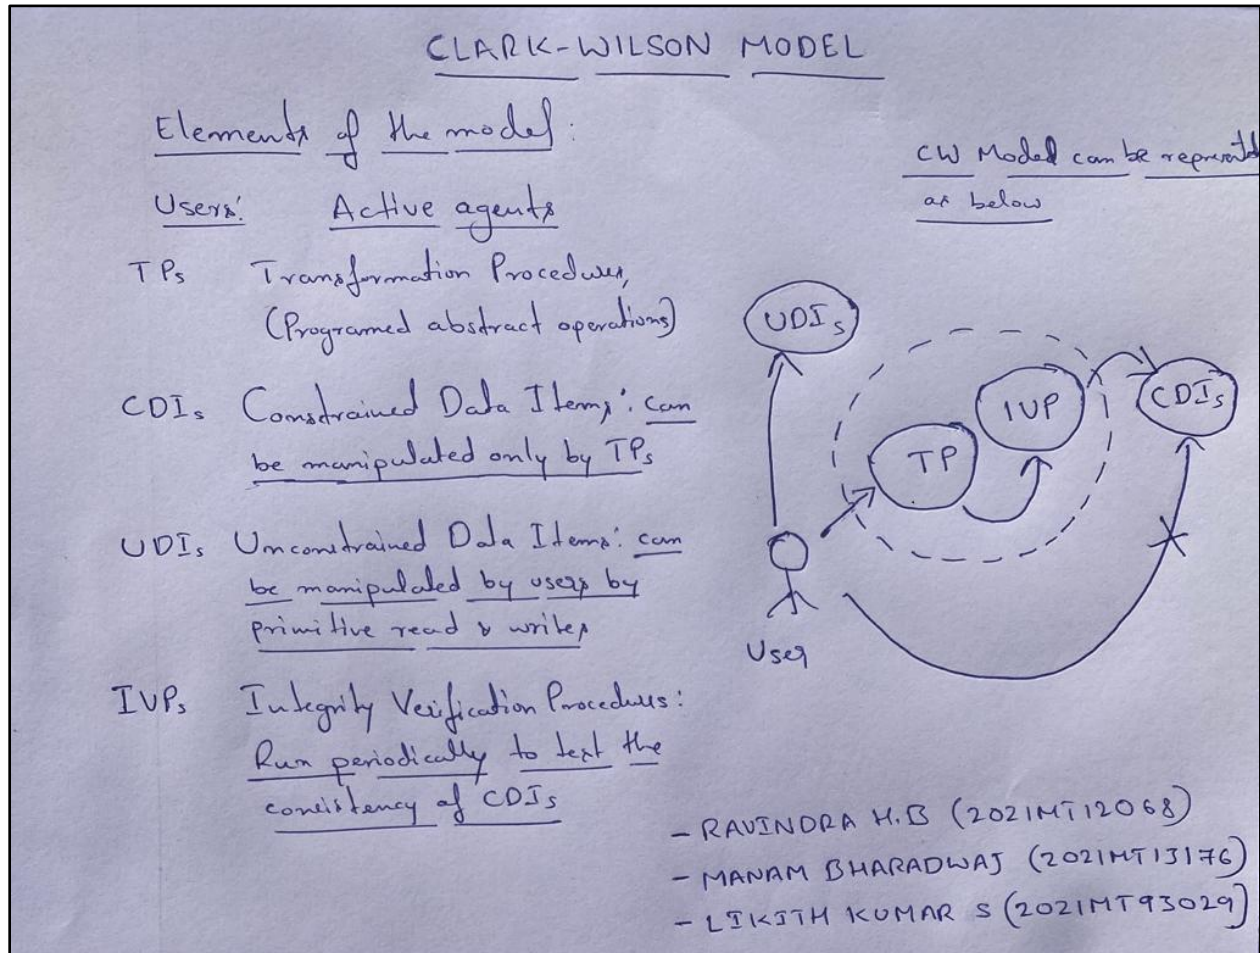 CLARK-WILSON MODEL
Elements of the model:
Users: Active agents
TPs Transformation Procedures,
(Programed abstract operations)
CDIs Constrained Data Items: can
be manipulated only by TPs
UDIs Unconstrained Data Items: can
be manipulated by users by
primitive read & writes
IVPs Integrity Verification Procedures:
Run periodically to test the
consistency of CDIs
CW Model can be represented
as below
UDIs
IVP
CDIs
TP
User
- RAVINDRA H.B (2021MT12068)
- MANAM BHARADWAJ (2021MT13176)
- LIKITH KUMAR S (2021MT93029)